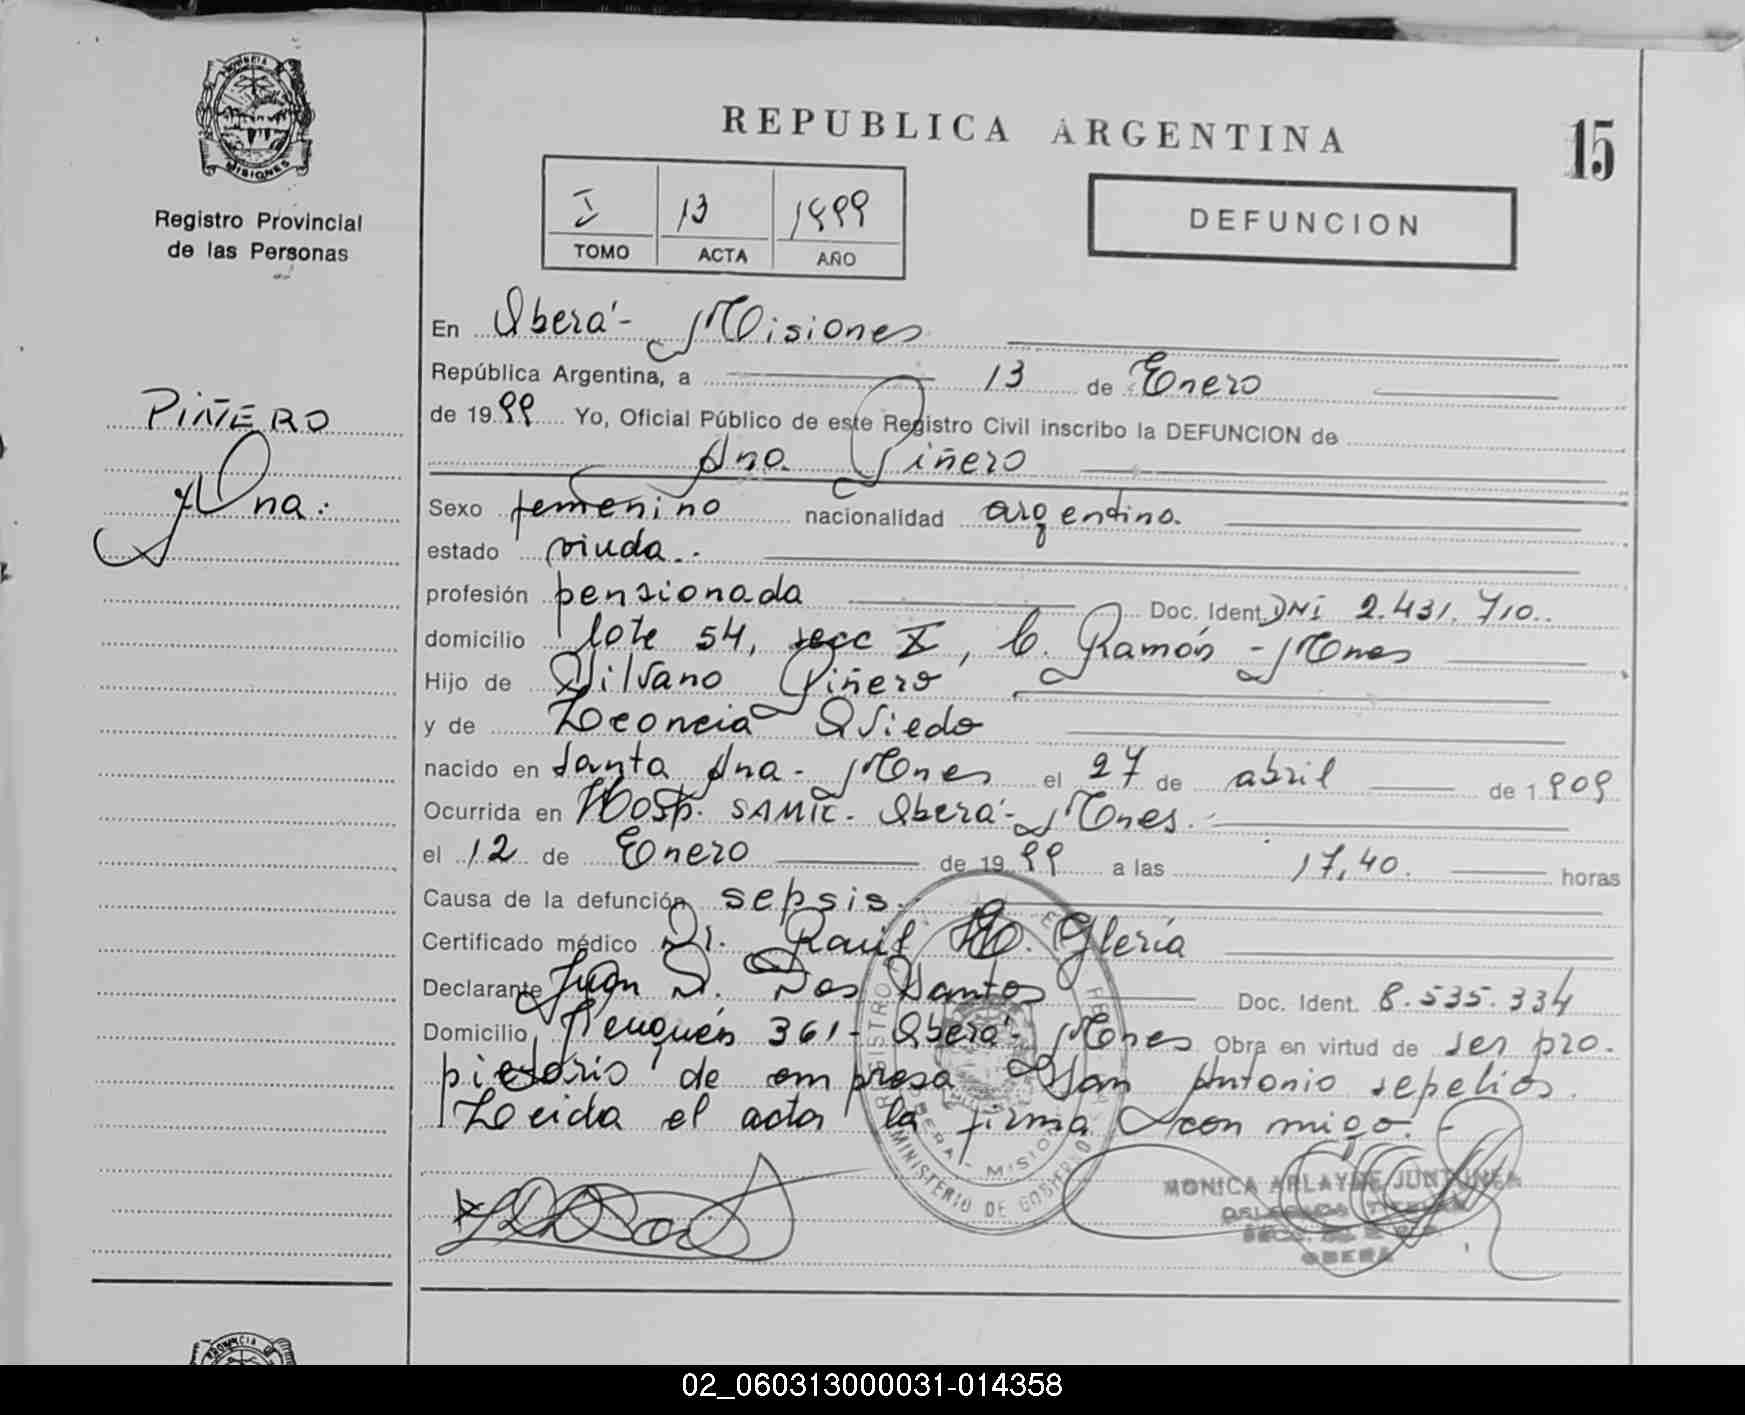 PROVINCIA DE
MISIONES
Registro Provincial
de las Personas
REPUBLICA ARGENTINA
15
I 13 1999
TOMO ACTA AÑO
DEFUNCION
PIÑERO
Ana.
En Oberá - Misiones
República Argentina, a 13 de Enero
de 1999 Yo, Oficial Público de este Registro Civil inscribo la DEFUNCION de
Ana Piñero
Sexo femenino nacionalidad argentina.
estado viuda.
profesión pensionada Doc. Ident. DNI 2.431.710.
domicilio lote 54, secc X, C. Ramón - Mnes
Hijo de Silvano Piñero
y de Leoncia Oviedo
nacido en Santa Ana - Mnes el 27 de abril de 1909
Ocurrida en Hosp. SAMIC - Oberá - Mnes.
el 12 de Enero de 1999 a las 17,40. horas
Causa de la defunción sepsis.
Certificado médico Dr. Raúl H. Glería
Declarante Juan D. Dos Santos Doc. Ident. 8.535.334
Domicilio Neuquén 361 - Oberá - Mnes Obra en virtud de ser pro-
pietario de empresa San Antonio sepelios.
Leida el acta la firma con migo. -
MINISTERIO DE GOBIERNO
MONICA
OBERA
PROVINCIA DE
02_060313000031-014358